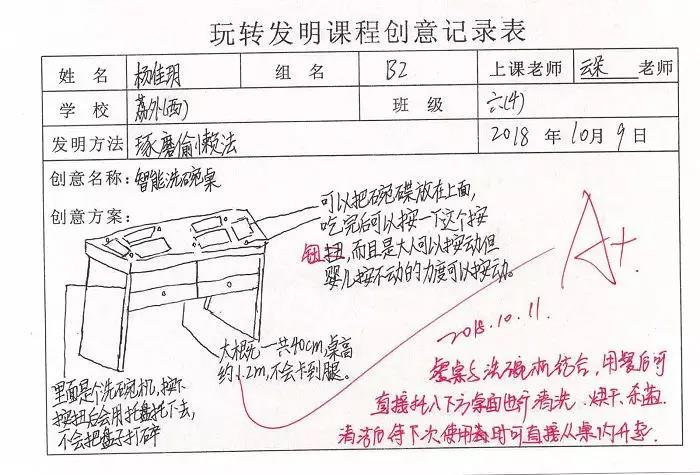 玩转发明课程创意记录表
姓 名 杨佳玥 组 名 B2 上课老师 云朵 老师
学 校 荔外(西) 班 级 六(4)
发明方法 琢磨偷懒法 2018 年 10 月 9 日
创意名称: 智能洗碗桌
创意方案:
可以把碗碟放在上面,
吃完后可以按一下这个按
钮,而且是大人可以按动但
婴儿按不动的力度可以按动。
A+
2018.10.11.
大概一共40cm,桌高
约1.2m,不会卡到腿。
里面是个洗碗机,按下
按扭后会用托盘托下去,
不会把盘子打碎
餐桌与洗碗机结合,用餐后可
直接 入下方桌面进行清洗、烘干、杀菌.
清洁后待下次使用 时可直接从桌内升起.